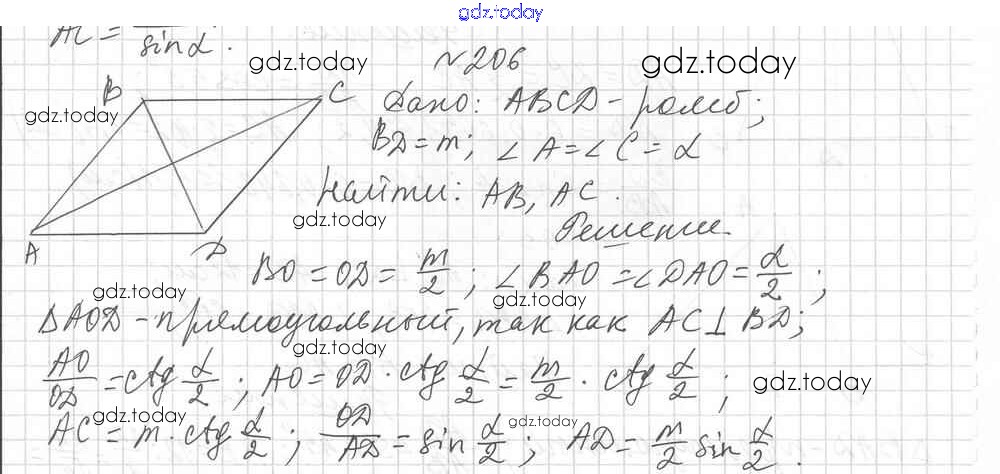 gdz.today
AC = ___ / sin α .
gdz.today
№206
gdz.today
B
C
gdz.today
A
D
Дано: ABCD - ромб;
BD = m; ∠A = ∠C = α
Найти: AB, AC.
gdz.today
Решение.
BO = OD = m/2 ; ∠BAO = ∠DAO = α/2 ;
gdz.today
gdz.today
ΔAOD - прямоугольный, так как AC ⊥ BD;
gdz.today
AO/OD = ctg α/2 ; AO = OD · ctg α/2 = m/2 · ctg α/2 ;
gdz.today
gdz.today
gdz.today
AC = m · ctg α/2 ; OD/AD = sin α/2 ; AD = m/2 sin α/2 .
gdz.today